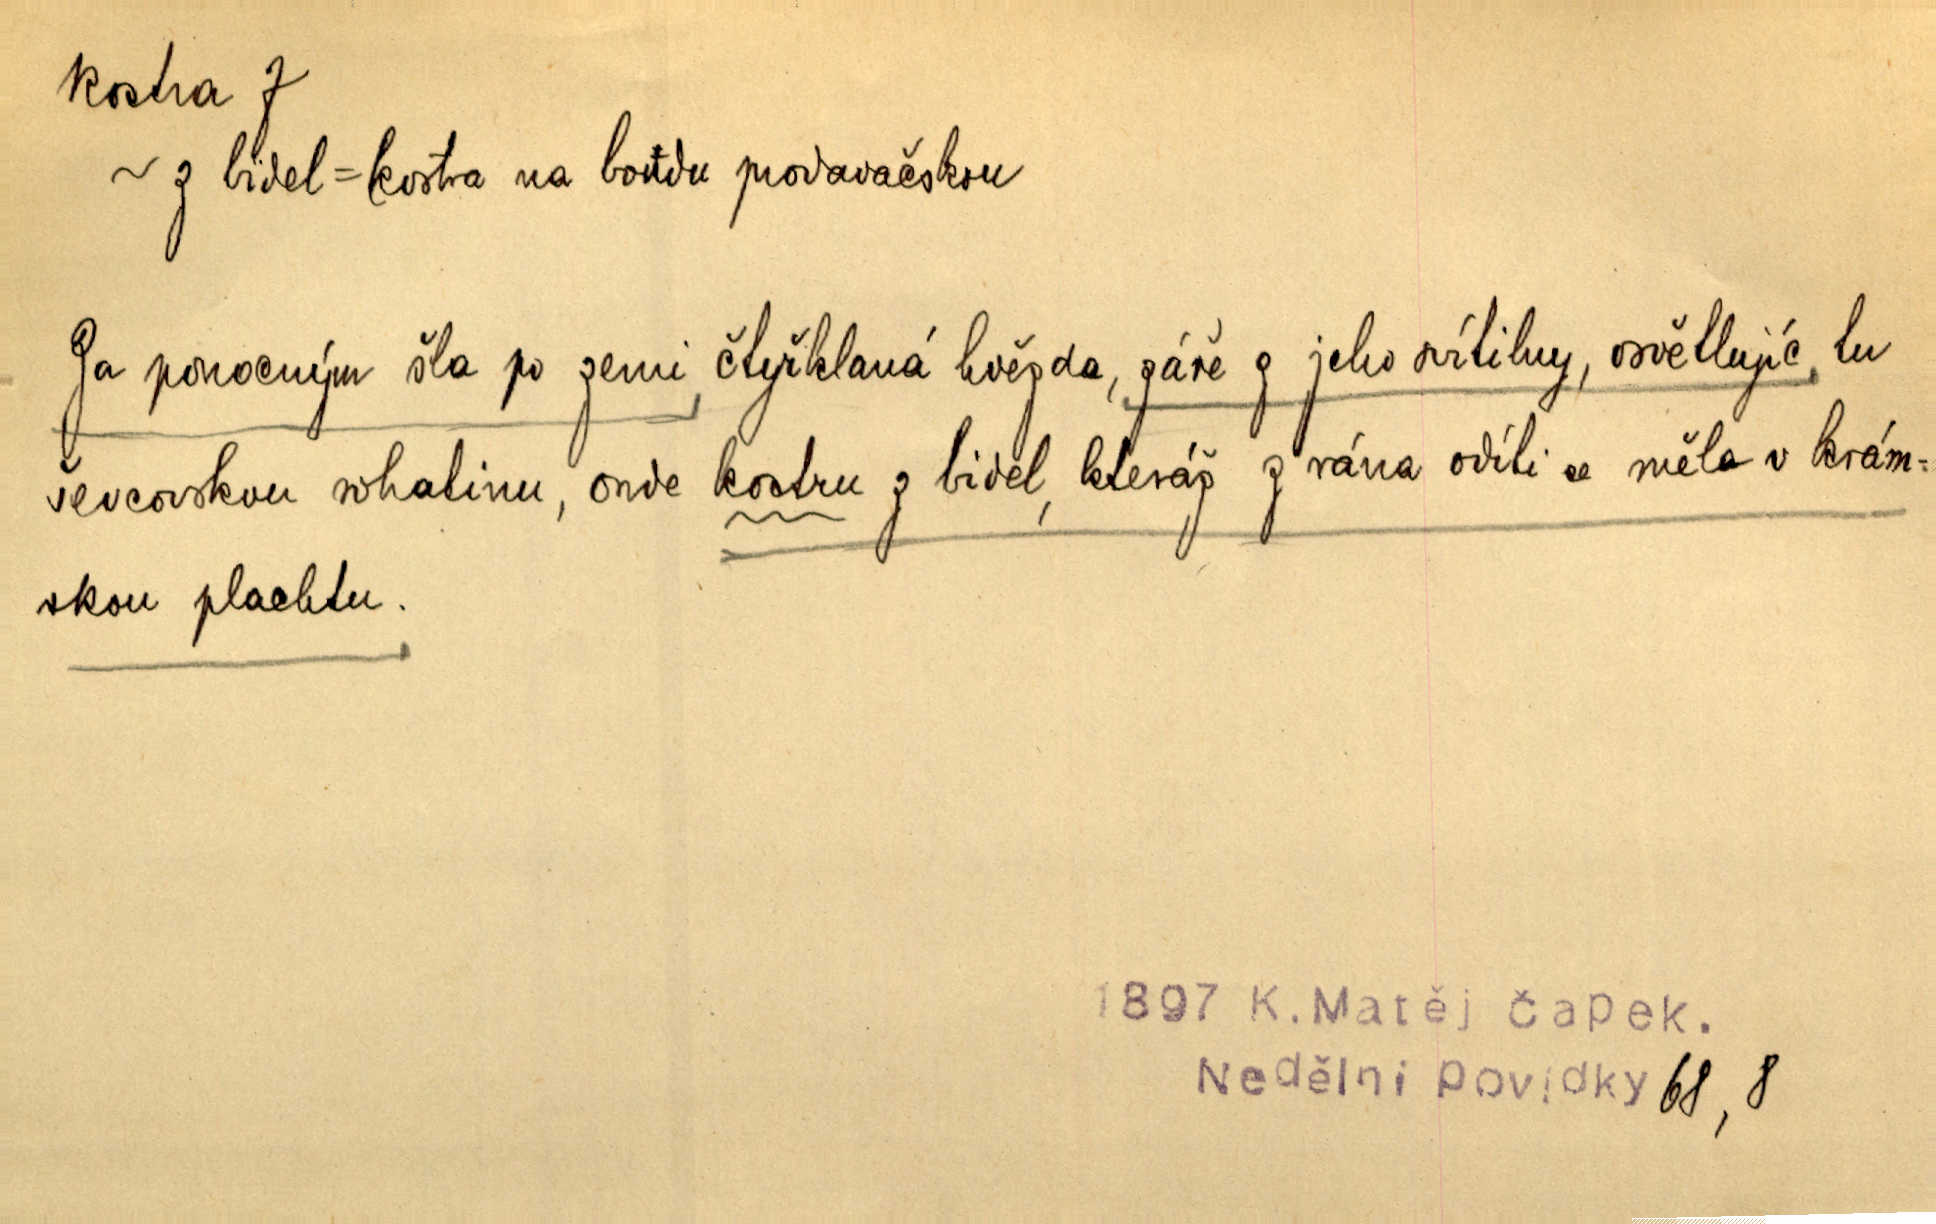 kostra f
~ z bidel = kostra na boudu prodavačskou
Za ponocným šla po zemi čtyřklaná hvězda, záře z jeho svítilny, osvětlujíc, tu
ševcovskou rohatinu, onde kostru z bidel, kteráž z rána odíti se měla v krám-
skou plachtu.
1897 K.Matěj Čapek.
Nedělní povídky 68, 8